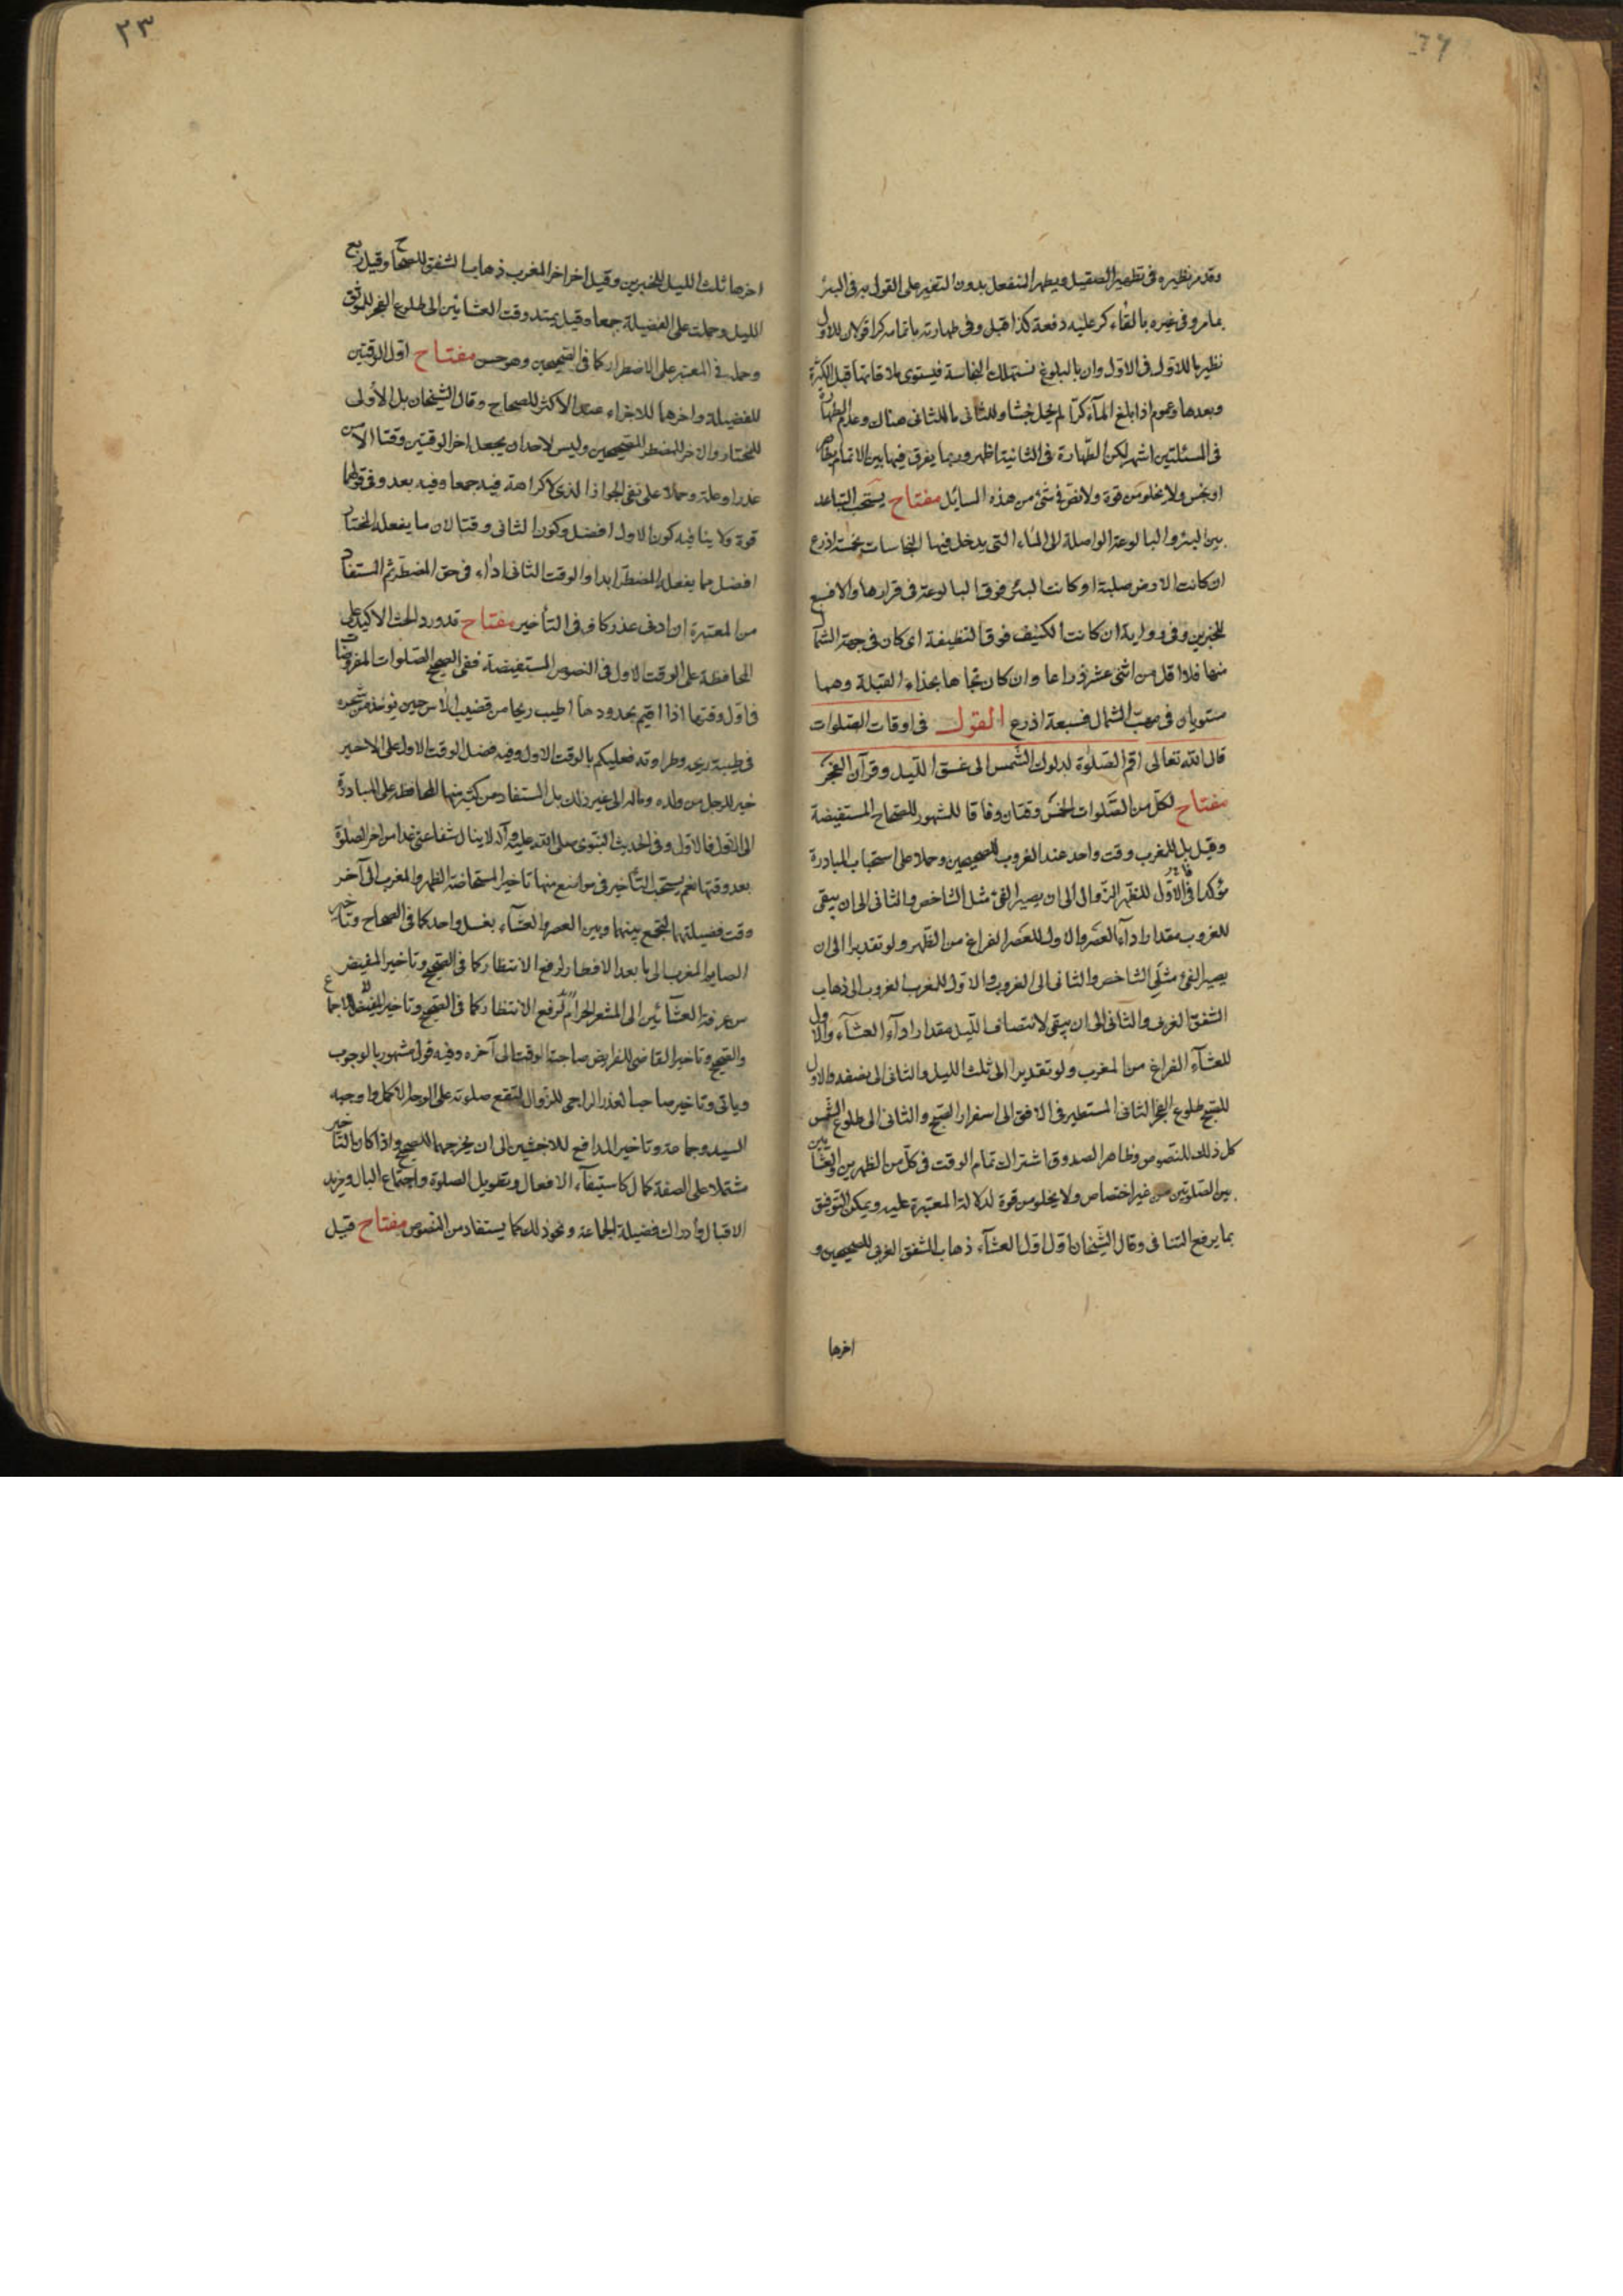 وقد مر نظيره فى تطهير الصقيل ويطهر المنفعل بدون التغير على القول به فى البئر
بما مر وفى غيره بالقاء كر عليه دفعة كذا قيل وفى طهارته باتمامه كرا قولان للاول
نظير ما للاول فى الاول وان بالبلوغ تستهلك النجاسة فيستوى ملاقاتها قبل الكثرة
وبعدها وعموم اذا بلغ المآء كرّا لم يحمل خبثا وللثانى ما للثانى هناك وعدم الطهارة
فى المسئلتين اشهر لكن الطّهارة فى الثانية اظهر وربما يفرق فيها بين الاتمام بطاهر
او نجس ولا يخلو من قوة ولا نص فى شئ من هذه المسائل مفتاح يستحب التباعد
بين البئر والبالوعة الواصلة الى الماء التى يدخل فيها النجاسات بخمسة اذرع
ان كانت الارض صلبة او كانت البئر فوق البالوعة فى قرارها والا فسبع
للخبرين وفى رواية ان كانت الكنيف فوق النظيفة اى كان فى جهة الشمال
منها فلا اقل من اثنى عشر ذراعا وان كان تجاهها بحذاء القبلة وهما
مستويان فى مهب الشمال فسبعة اذرع القول فى اوقات الصلوات
قال الله تعالى اقم الصّلوة لدلوك الشّمس الى غسق الليل وقرآن الفجر
مفتاح لكلّ من الصّلوات الخمس وقتان وفاقا للمشهور للصحاح المستفيضة
وقيل بل للمغرب وقت واحد عند الغروب للصحيحين وحملا على استحباب المبادرة
مؤكدا فالاوّل للظهر الزّوال الى ان يصير الفئ مثل الشاخص والثانى الى ان يبقى
للغروب مقدار ادآء العصر والاول للعصر الفراغ من الظهر ولو تقديرا الى ان
يصير الفئ مثلى الشاخص والثانى الى الغروب والاول للمغرب الغروب الى ذهاب
الشفق الغربى والثانى الى ان يبقى لانتصاف الليل مقدار ادآء العشآء والاول
للعشآء الفراغ من المغرب ولو تقديرا الى ثلث الليل والثانى الى نصفه والاول
للصبح طلوع الفجر الثانى المستطير فى الافق الى اسفرار الصبح والثانى الى طلوع الشمس
كل ذلك للنصوص وظاهر الصدوق اشتراك تمام الوقت فى كلّ من الظهرين والعشائين
بين الصلوتين من غير اختصاص ولا يخلو من قوة لدلالة المعتبرة عليه ويمكن التوفيق
بما يرفع التنافى وقال الشيخان اوّل اول العشآء ذهاب الشفق الغربى للصحيحين و
اخرها
٢٣
اخرها ثلث الليل للخبرين وقيل اخر اخر المغرب ذهاب الشفق للصحاح وقيل ربع
الليل وحملت على الفضيلة جمعا وقيل يمتد وقت العشائين الى طلوع الفجر للموثق
وحمله فى المعتبر على الاضطرار كما فى الصحيحين وهو حسن مفتاح اول الوقتين
للفضيلة واخرها للاجزاء عند الاكثر للصحاح وقال الشيخان بل الأولى
للمختار والاخر للمضطر للصحيحين وليس لاحد ان يجعل اخر الوقتين وقتا الا من
عذر او علة وحملا على نفى الجواز الذى لا كراهة فيه جمعا وفيه بعد وفى قولهما
قوة ولا ينافيه كون الاول افضل وكون الثانى وقتا لان ما يفعله المختار
افضل مما يفعله المضطر ابدا والوقت الثانى اداء فى حق المضطر ثم المستفاد
من المعتبرة ان ادنى عذر كاف فى التأخير مفتاح قد ورد الحث الاكيد على
المحافظة على الوقت الاول فى النصوص المستفيضة ففى الصحيح الصّلوات المفروضات
فى اوّل وقتها اذا اقيم بحدودها اطيب ريحا من قضيب الآس حين يوخذ من شجره
فى طيبه وريحه وطراوته فعليكم بالوقت الاول وفيه فضل الوقت الاول على الاخير
خير للرجل من ولده وماله الى غير ذلك بل المستفاد من كثير منها المحافظة على المبادرة
الى الاول فالاول وفى الحديث النبوى صلى الله عليه وآله لا ينال شفاعتى غدا من اخر الصلوة
بعد وقتها نعم يستحب التأخير فى مواضع منها تاخير المستحاضة الظهر والمغرب الى آخر
وقت فضيلتهما لتجمع بينهما وبين العصر والعشآء بغسل واحد كما فى الصحاح وتاخير
الصايم المغرب الى ما بعد الافطار لرفع الانتظار كما فى الصحيح وتاخير المفيض
من عرفة العشآئين الى المشعر الحرام
والصحيح وتاخير القاضى للفرايض صاحبة الوقت الى آخره وفيه قول مشهور بالوجوب
وياتى وتاخير صاحب العذر الراجى للزوال لتقع صلوته على الوجه الاكمل واوجبه
السيد وجماعة وتاخير المدافع للاخبثين الى ان يخرجهما للصحيح واذا كان التاخير
مشتملا على الصفة كمال كاستيفآء الافعال وتطويل الصلوة واجتماع البال ومزيد
الاقبال وادراك فضيلة الجماعة ونحو ذلك كما يستفاد من النصوص مفتاح قيل